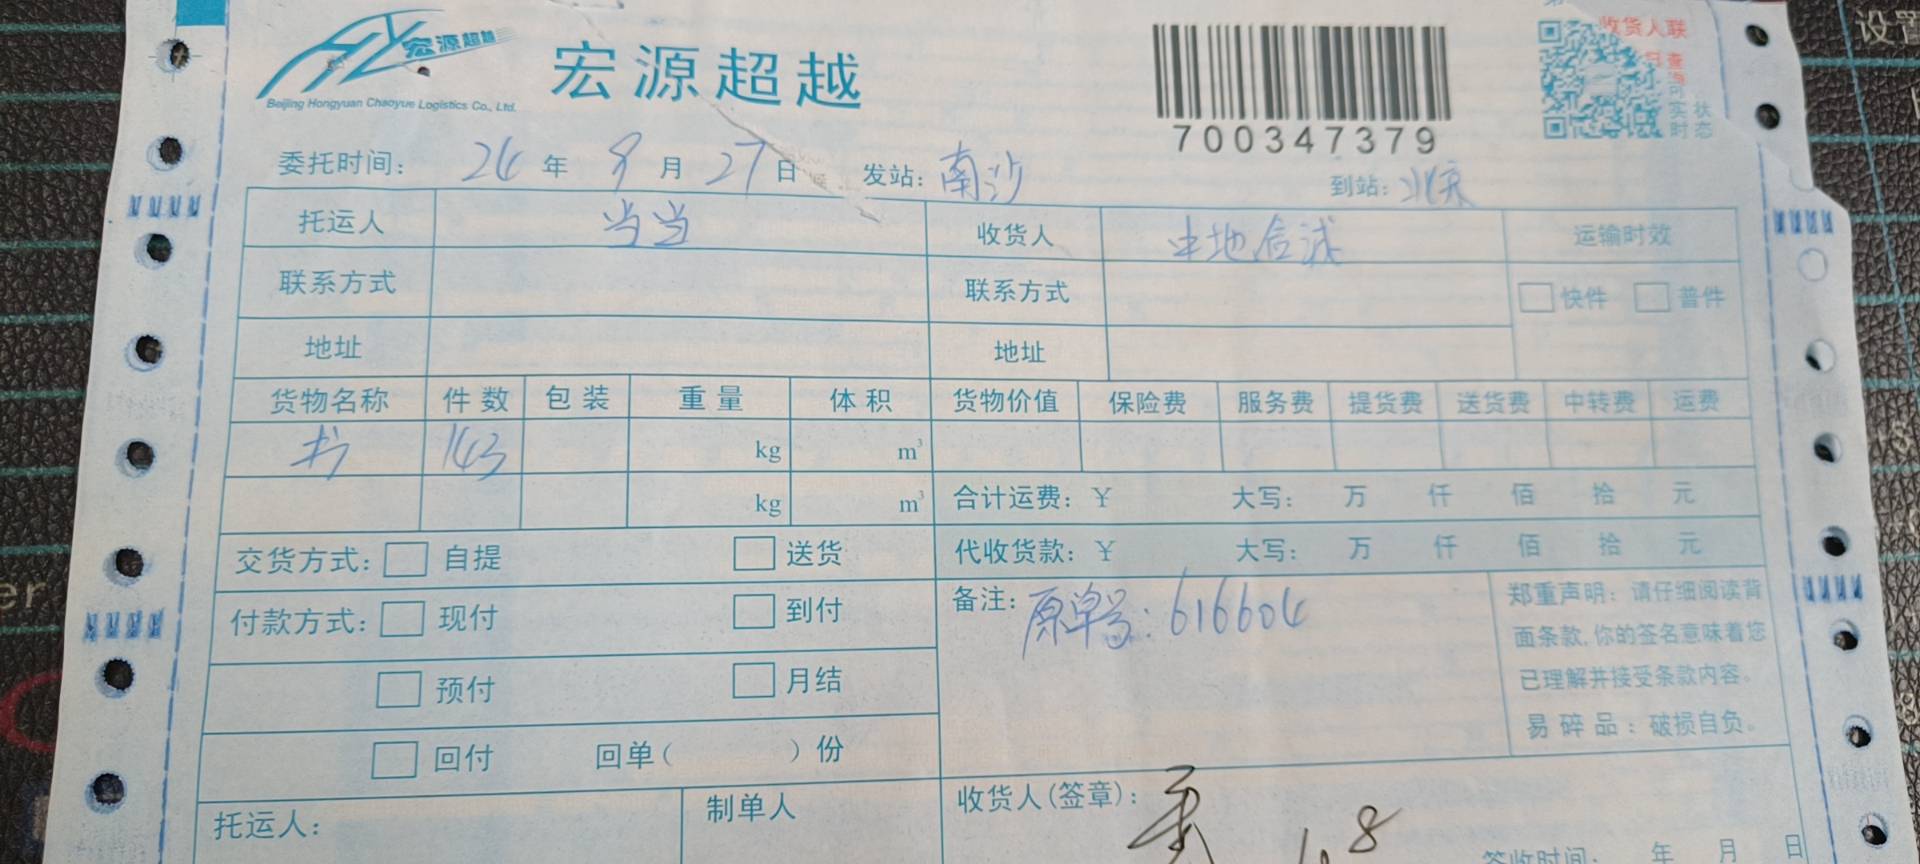 宏源超越
Beijing Hongyuan Chaoyue Logistics Co., Ltd.
宏源超越
700347379
收货人联
委托时间: 24 年 8 月 27 日 发站: 南沙 到站: 北京
托运人 当当 收货人 中地合诚 运输时效
联系方式 联系方式 快件 普件
地址 地址
货物名称 件数 包装 重量 体积 货物价值 保险费 服务费 提货费 送货费 中转费 运费
书 143 kg m³
kg m³ 合计运费: ¥ 大写: 万 仟 佰 拾 元
交货方式: 自提 送货 代收货款: ¥ 大写: 万 仟 佰 拾 元
付款方式: 现付 到付 备注: 原单号: 616604
预付 月结
回付 回单( )份
郑重声明: 请仔细阅读背
面条款,你的签名意味着您
已理解并接受条款内容。
易碎品: 破损自负。
托运人: 制单人 收货人(签章):
签收时间: 年 月 日
设置